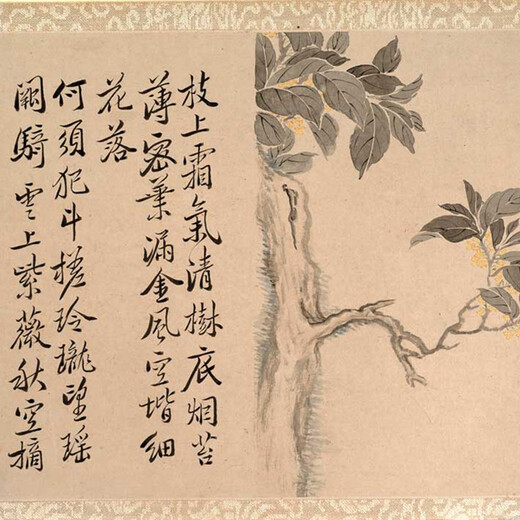 枝上霜氣清樹底烟苔
薄密葉漏金風空堦細
花落
何須犯斗槎玲瓏望瑤
闕騎雲上紫薇秋空摘